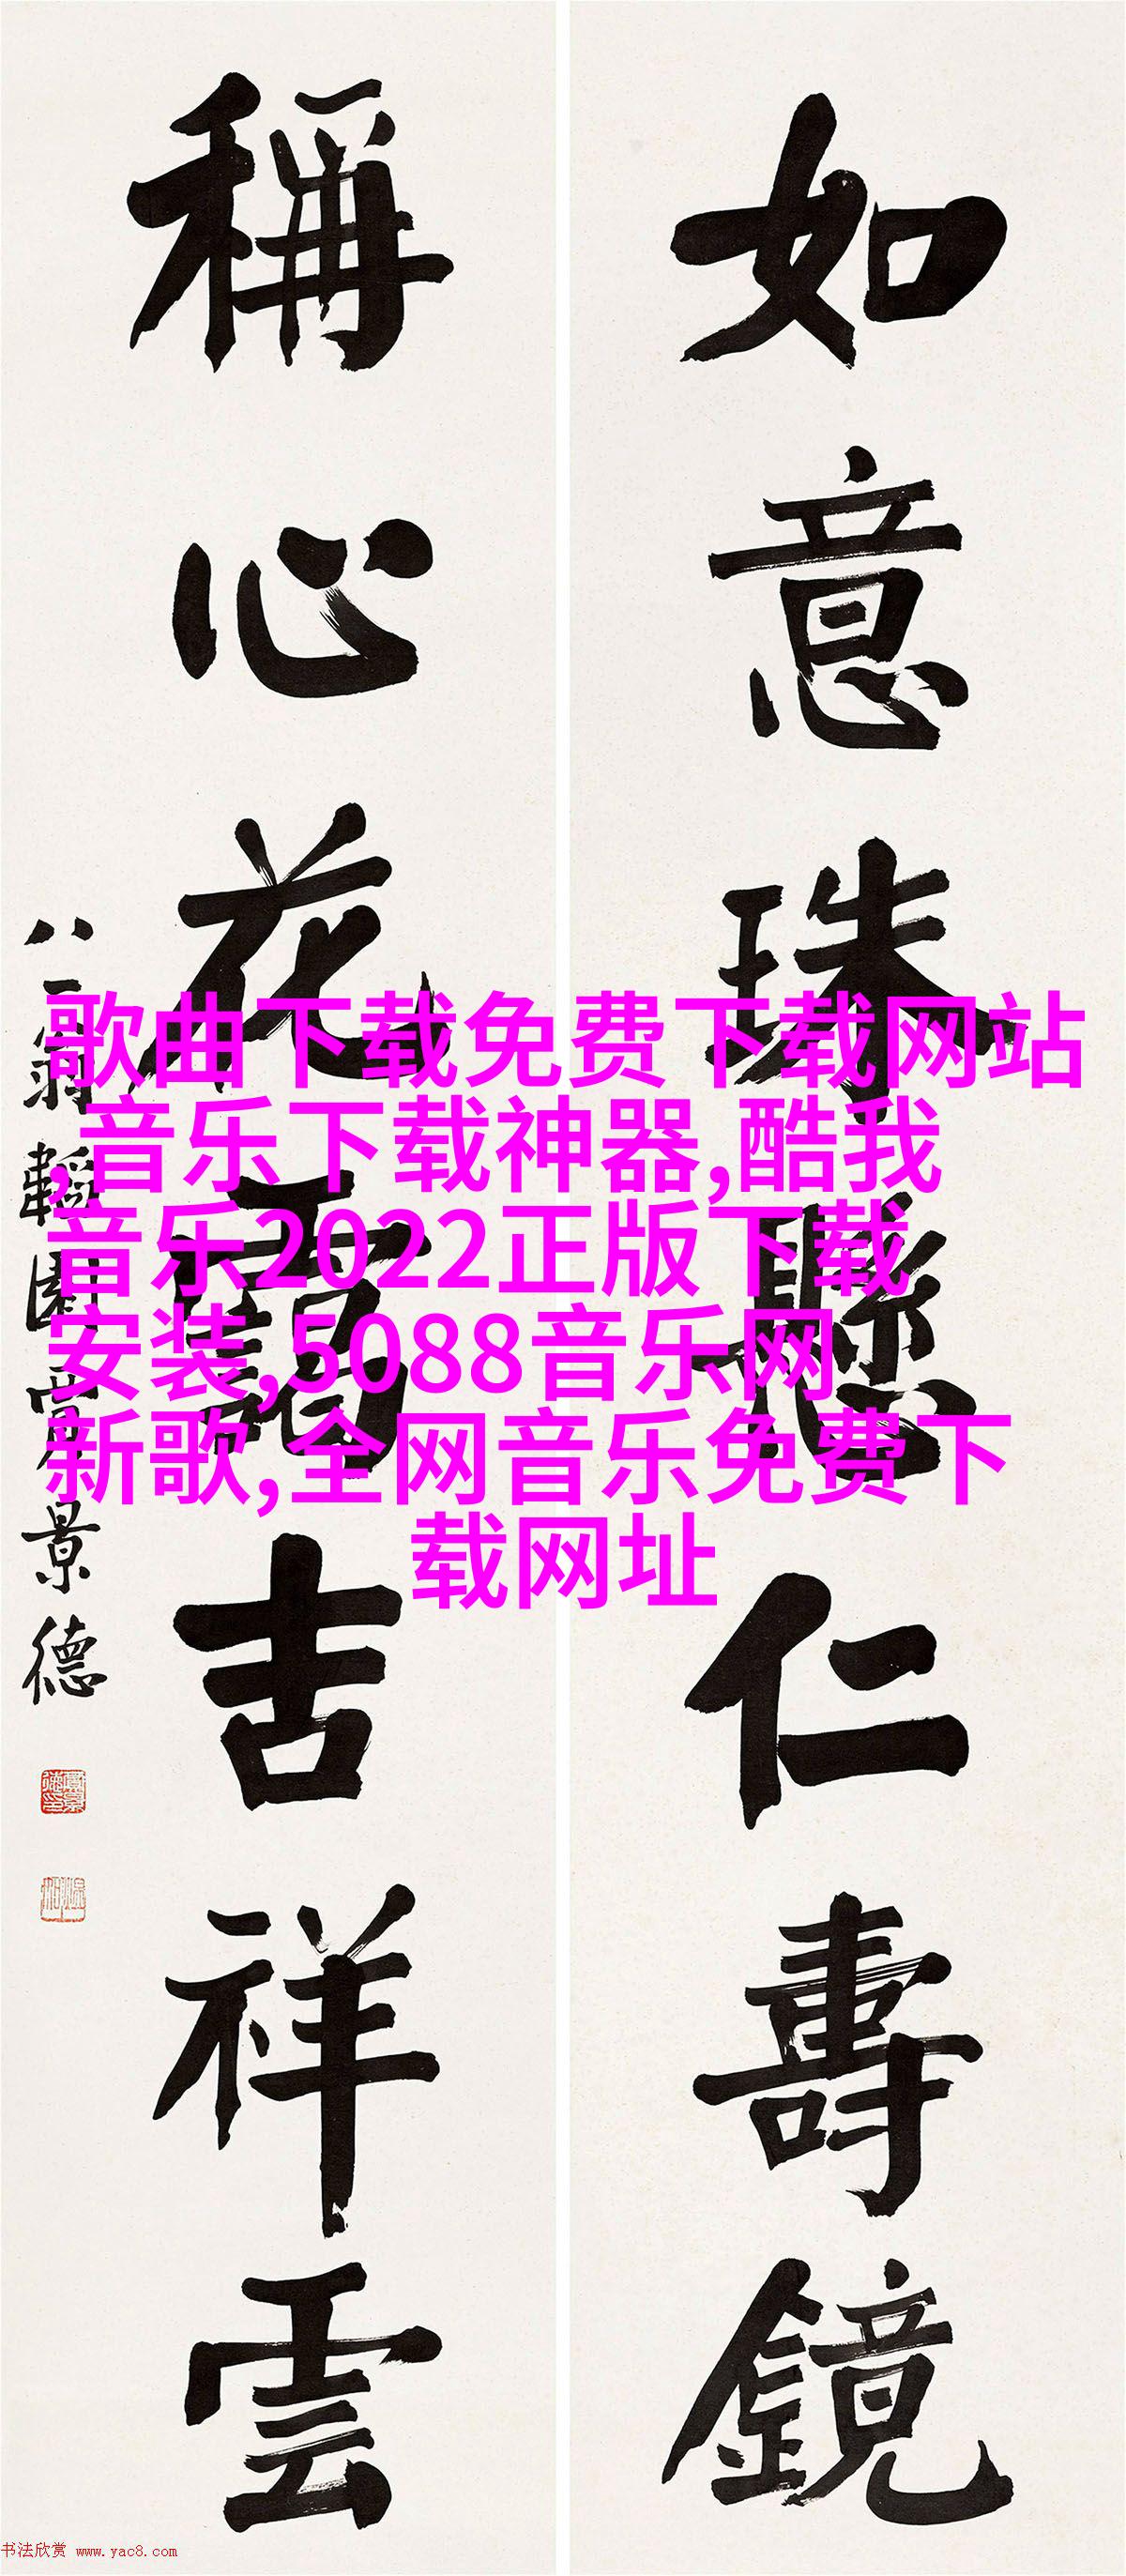 如意珠懸仁壽鏡
稱心花吉祥雲
八一翁韜園賈景德
歌曲下载免费下载网站
,音乐下载神器,酷我
音乐2022正版下载
安装,5088音乐网
新歌,全网音乐免费下
载网址
书法欣赏 www.yac8.com